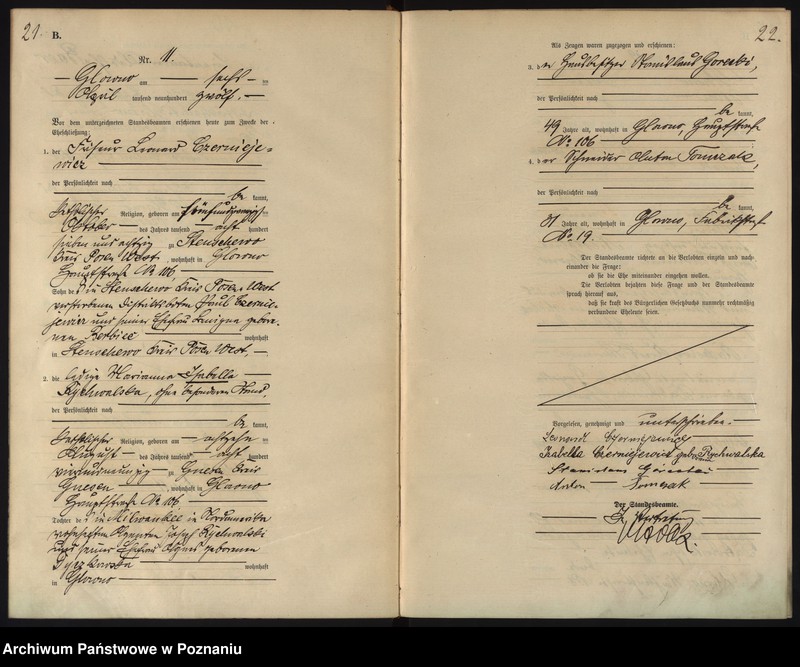 21.
B.
Nr. 11.
Glowno am sechs ten
April tausend neunhundert zwölf.
Vor dem unterzeichneten Standesbeamten erschienen heute zum Zwecke der
Eheschließung:
1. der Friseur Leonard Czernieje-
wicz
der Persönlichkeit nach
be kannt,
katholischer Religion, geboren am fünfundzwanzigsten
Oktober des Jahres tausend acht hundert
sieben und achtzig zu Stenschewo
Kreis Posen West, wohnhaft in Glowno
Hauptstraße No 106
Sohn des in Stenschewo Kreis Posen West
verstorbenen Distriktsboten Paul Czernie-
jewicz und seiner Ehefrau gebore-
nen
wohnhaft
in Stenschewo Kreis Posen West,
2. die ledige Marianna Isabella
Rychwalska, ohne besonderen Stand,
der Persönlichkeit nach
be kannt,
katholischer Religion, geboren am achtzehn ten
August des Jahres tausend acht hundert
vierundneunzig zu Gnesen Kreis
Gnesen, wohnhaft in Glowno
Hauptstraße No 106
Tochter des in Milwaukee in Nordamerika
wohnhaften Agenten Josef Rychwalski
und seiner Ehefrau Agnes geborenen
wohnhaft
in Glowno
22.
Als Zeugen waren zugezogen und erschienen:
3. der Hausbesitzer Stanislaus Gorecki,
der Persönlichkeit nach
be kannt,
49 Jahre alt, wohnhaft in Glowno, Hauptstraße
No 106
4. der Schneider Anton Tomczak,
der Persönlichkeit nach
be kannt,
31 Jahre alt, wohnhaft in Glowno, Fabrikstraße
No 19.
Der Standesbeamte richtete an die Verlobten einzeln und nach-
einander die Frage:
ob sie die Ehe miteinander eingehen wollen.
Die Verlobten bejahten diese Frage und der Standesbeamte
sprach hierauf aus,
daß sie kraft des Bürgerlichen Gesetzbuchs nunmehr rechtmäßig
verbundene Eheleute seien.
Vorgelesen, genehmigt und unterschrieben.
Leonard Czerniejewicz
Izabella Czerniejewicz geborene Rychwalska
Stanislaus Górecki
Anton Tomczak
Der Standesbeamte.
In Vertretung
Archiwum Państwowe w Poznaniu